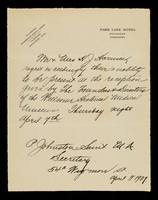 PARK LANE HOTEL
Mr & Mrs
regret exceedingly their inability
to be present at the reception
given by the Founder & Directors
of the Wellcome Historical Medical
Museum Thursday night
April 7th
P. Johnston-Saint
Secretary
54A Wigmore St
April 3